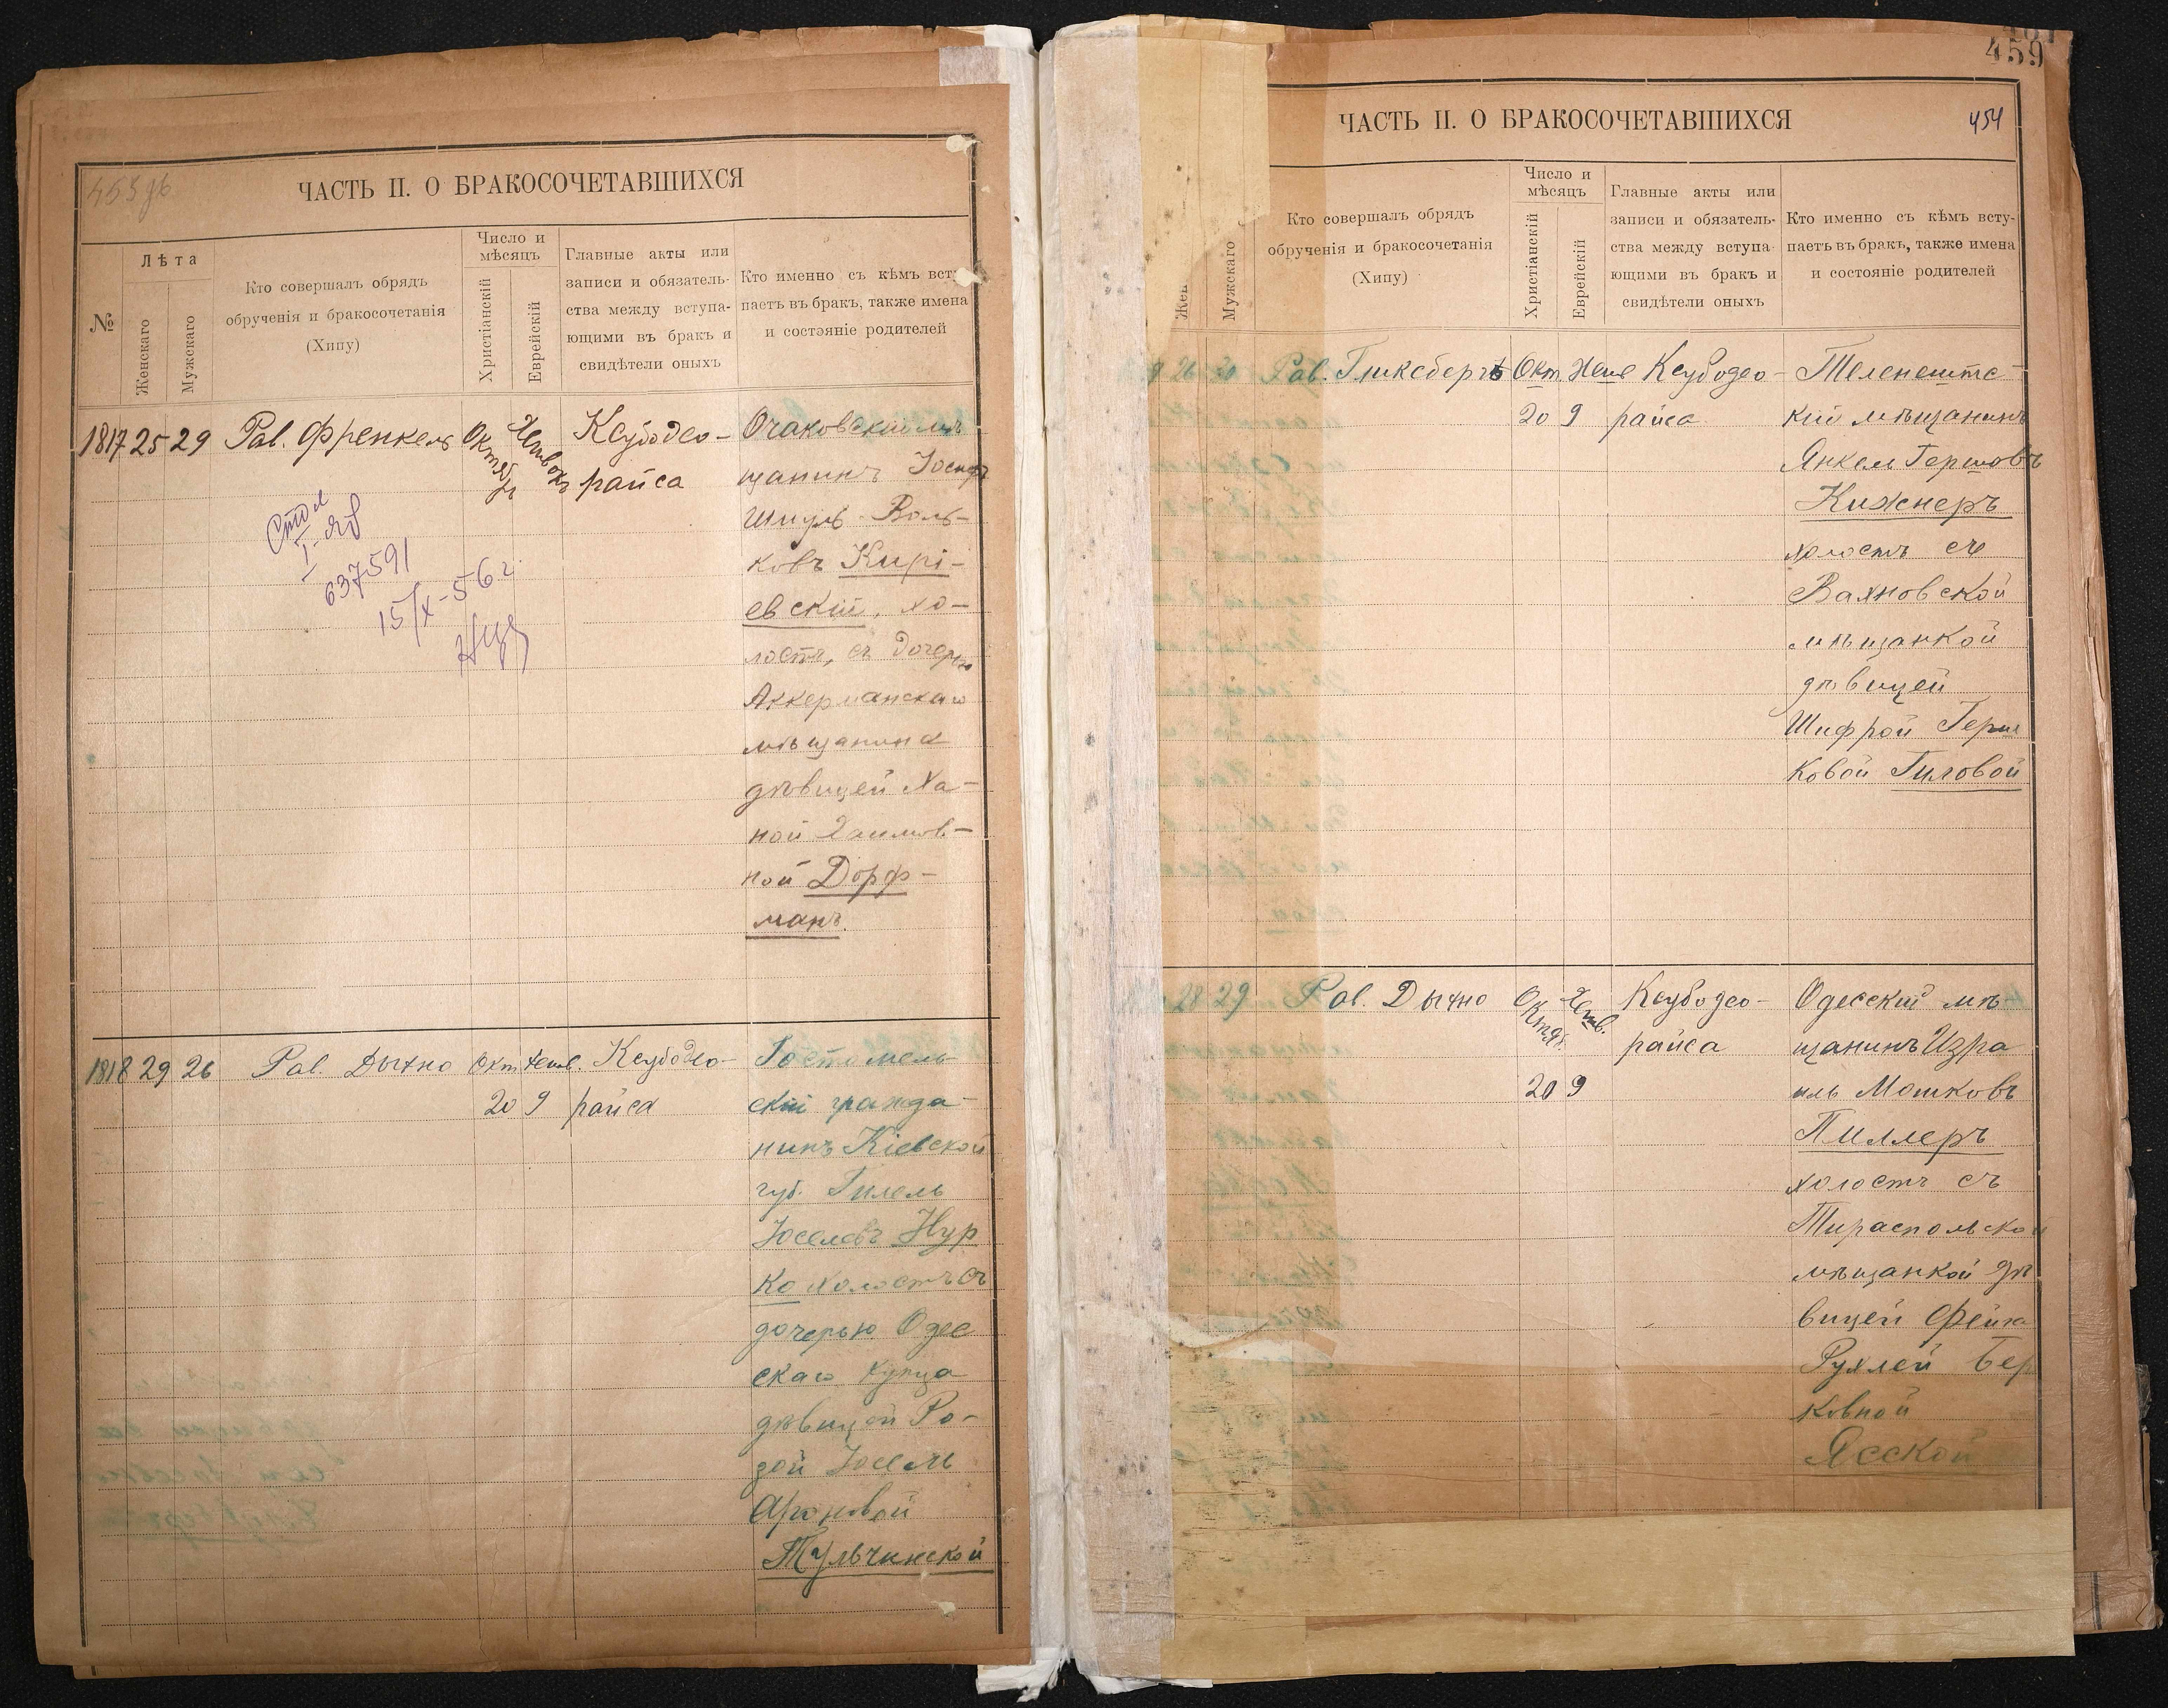 453 дк
ЧАСТЬ II. О БРАКОСОЧЕТАВШИХСЯ
№
Лѣта
Женскаго
Мужскаго
Кто совершалъ обрядъ
обрученія и бракосочетанія
(Хипу)
Число и
мѣсяцъ
Христіанскій
Еврейскій
Главные акты или
записи и обязатель-
ства между вступа-
ющими въ бракъ и
свидѣтели оныхъ
Кто именно съ кѣмъ всту-
паетъ въ бракъ, также имена
и состояніе родителей
1817 25 29 Рав. Френкель Октябрь Ксубодео-
райса
Очаковскій мѣ
щанинъ Іосифъ
Шмуль Воль-
ковъ Кирі-
евскій, хо-
лостъ, съ дочерью
Аккерманскаго
мѣщанина
дѣвицей Ха-
ной Хаимов-
ной Дорф-
манъ.
637591
15/X-56 г.
1818 29 26 Рав. Дыхно Окт. Хешв. Ксубодео-
20 9 райса
Гостомель-
скій гражда-
нинъ Кіевской
губ. Гилель
Іоселевъ Нур
ко холостъ съ
дочерью Одес
скаго купца
дѣвицей Ро-
зой Іосель
Ароновой
Тульчинской
459
454
ЧАСТЬ II. О БРАКОСОЧЕТАВШИХСЯ
Жен
Мужскаго
Кто совершалъ обрядъ
обрученія и бракосочетанія
(Хипу)
Число и
мѣсяцъ
Христіанскій
Еврейскій
Главные акты или
записи и обязатель-
ства между вступа-
ющими въ бракъ и
свидѣтели оныхъ
Кто именно съ кѣмъ всту-
паетъ въ бракъ, также имена
и состояніе родителей
9 26 30 Рав. Гликсбергъ Окт. Хешв Ксубодео-
20 9 райса
Теленештс-
кій мѣщанинъ
Янкель Гершовъ
Кижнеръ
холостъ съ
Вахновской
мѣщанкой
дѣвицей
Шифрой Герш
ковой Гиловой
28 29 Рав. Дыхно Октяб. Хешв. Ксубодео-
райса
20 9
Одесскій мѣ-
щанинъ Изра
иль Мошковъ
Пиллеръ
холостъ съ
Тираспольской
мѣщанкой дѣ
вицей Фейга
Рухлей Бер
ковной
Ясской